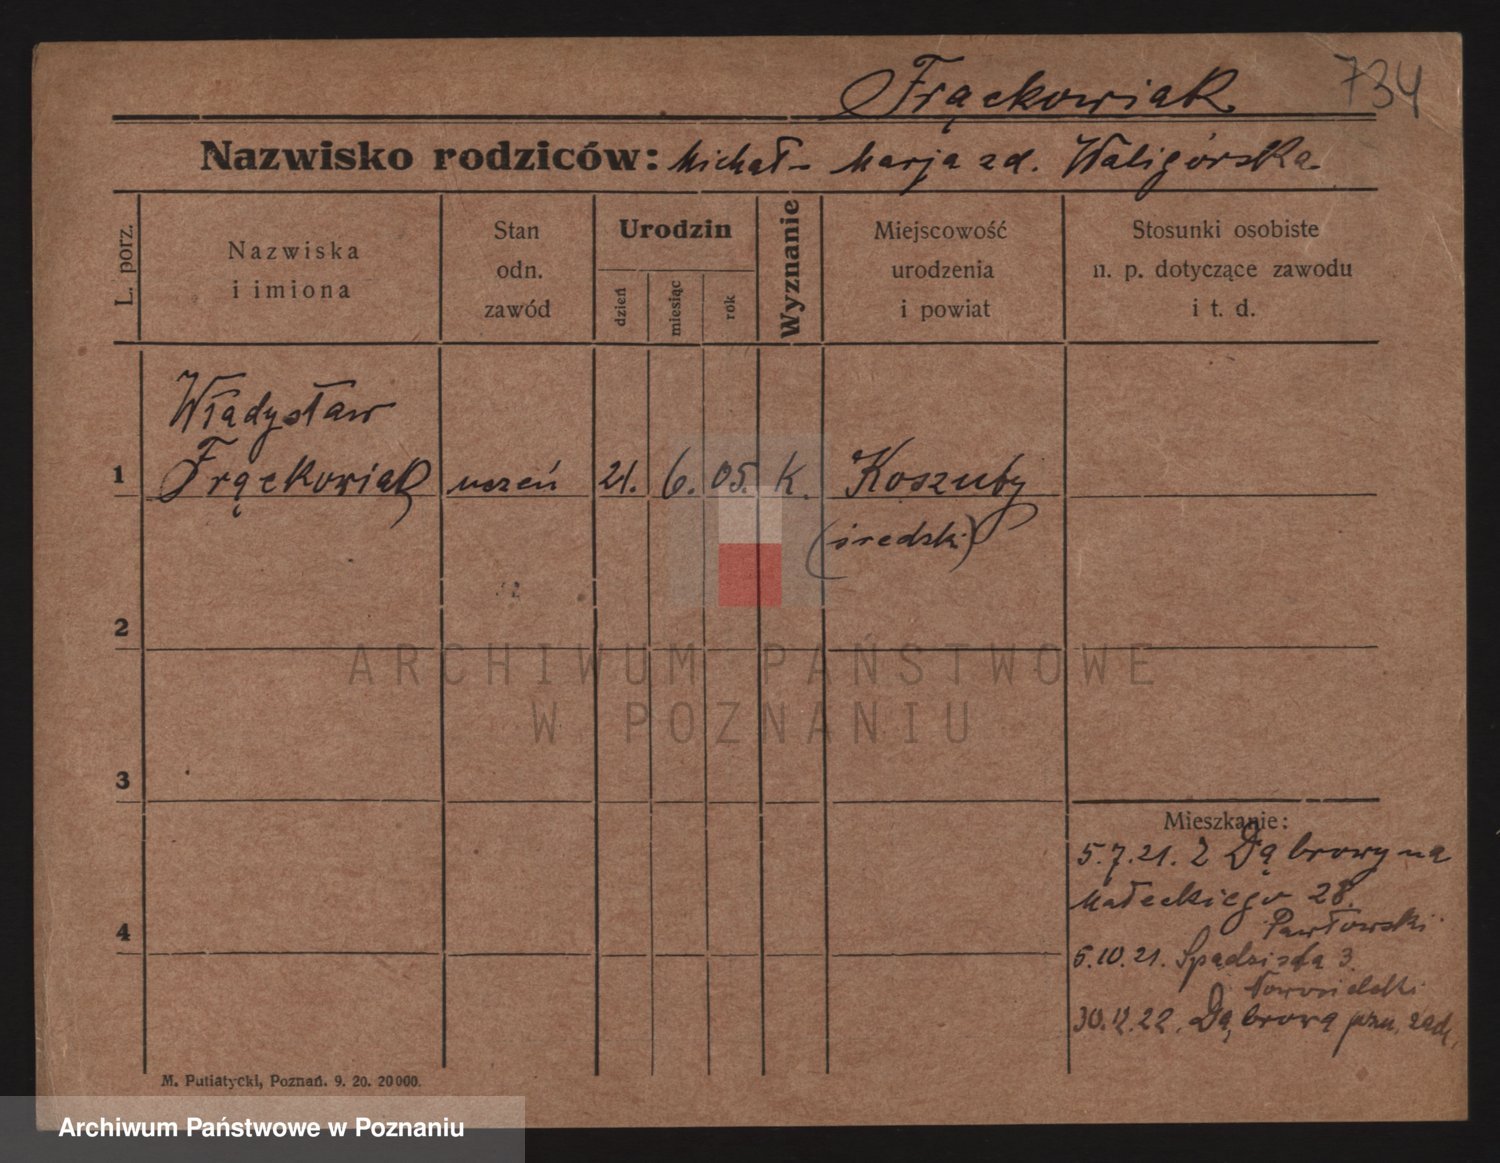 Frąckowiak 734
Nazwisko rodziców: Michał - Marja zd. Waligórska
L. porz.
Nazwiska
i imiona
Stan
odn.
zawód
Urodzin
dzień
miesiąc
rok
Wyznanie
Miejscowość
urodzenia
i powiat
Stosunki osobiste
n. p. dotyczące zawodu
i t. d.
Władysław
1 Frąckowiak uczeń 21. 6. 05. K. Koszuty
(średzki)
2
3
4
Mieszkanie:
5.7.21. Z Dąbrowy na
Małeckiego 28.
Pawłowski
6.10.21. Spadzista 3.
30.12.22. Dąbrowa
M. Putiatycki, Poznań. 9. 20. 20000.
ARCHIWUM PAŃSTWOWE
W POZNANIU
Archiwum Państwowe w Poznaniu